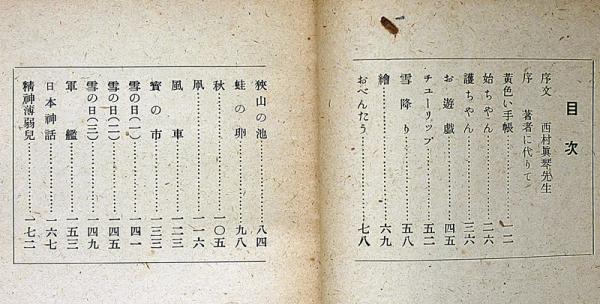 目次
序文　西村眞琴先生
序　著者に代りて
黃色い手帳……………一二
始ちやん……………二六
護ちやん……………三六
お遊戲……………四五
チューリップ……………五二
雪降り……………五八
繪……………六九
おべんたう……………七八
狹山の池……………八四
蛙の卵……………九八
秋……………一〇五
凧……………一一六
風車……………一二三
寶の市……………一三三
雪の日(一)……………一四一
雪の日(二)……………一四五
雪の日(三)……………一四九
軍艦……………一五三
日本神話……………一六七
精神薄弱兒……………一七二